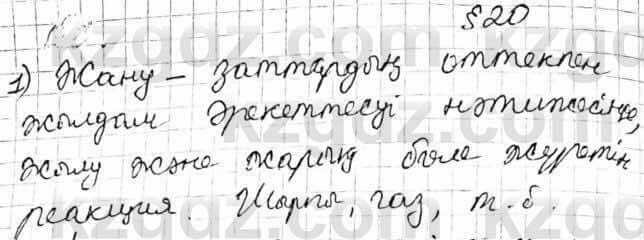 §20
1) Жану – заттардың оттекпен
жылдам әрекеттесуі нәтижесінде,
жылу және жарық бөле жүретін
реакция. Шырпы, газ, т.б.